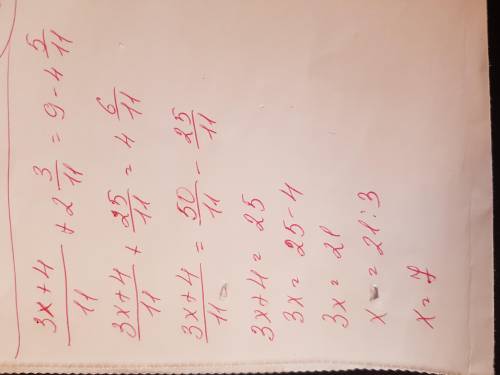 (3x+4)/11 + 2 3/11 = 9 - 4 5/11
(3x+4)/11 + 25/11 = 4 6/11
(3x+4)/11 = 50/11 - 25/11
3x+4 = 25
3x = 25-4
3x = 21
x = 21:3
x = 7